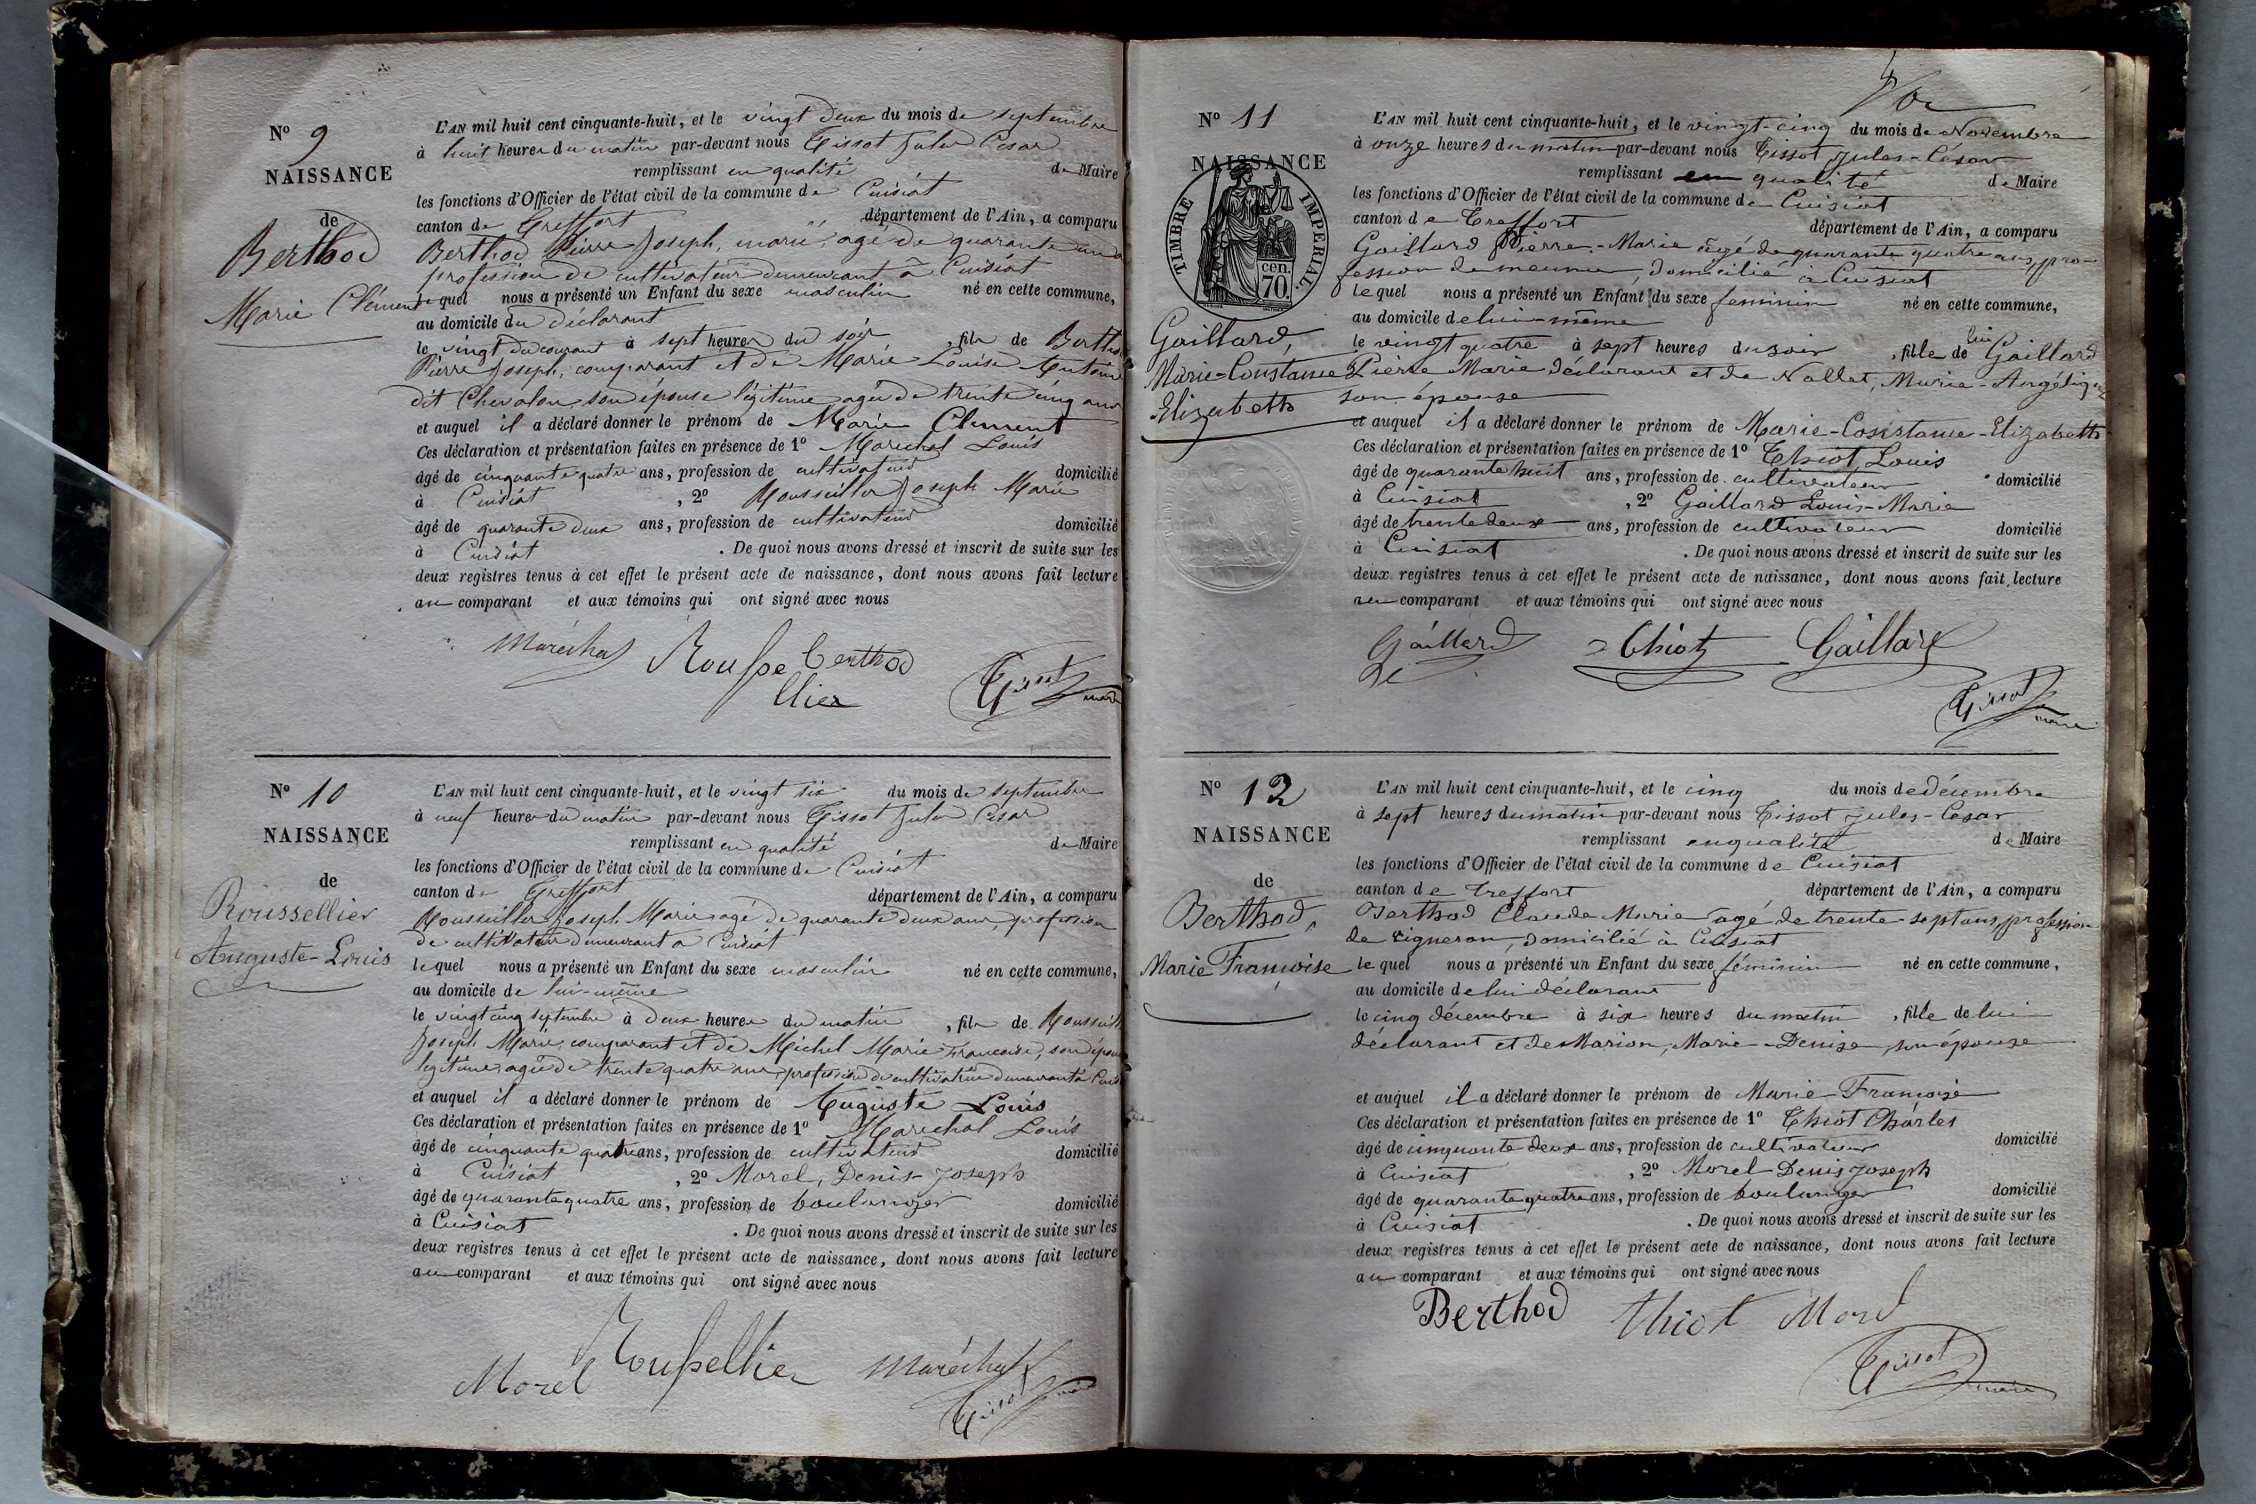 Nº 9
NAISSANCE
de
Berthod
Marie Clément
L'AN mil huit cent cinquante-huit, et le vingt deux du mois de septembre
à huit heures du matin par-devant nous Tissot Jules César
remplissant en qualité de Maire
les fonctions d'Officier de l'état civil de la commune de Cuisiat
canton de Treffort département de l'Ain, a comparu
Berthod Pierre Joseph, marié, agé de quarante ans
profession de cultivateur demeurant à Cuisiat
lequel nous a présenté un Enfant du sexe masculin né en cette commune,
au domicile du déclarant
le vingt du courant à sept heures du soir, fils de Berthod
Pierre Joseph, comparant et de Marie Louise Antoine
dit Chevalon, son épouse légitime agée de trente cinq ans
et auquel il a déclaré donner le prénom de Marie Clement
Ces déclaration et présentation faites en présence de 1º Marechal Louis
âgé de cinquante quatre ans, profession de cultivateur domicilié
à Cuisiat, 2º Rousseiller Joseph Marie
âgé de quarante deux ans, profession de cultivateur domicilié
à Cuisiat. De quoi nous avons dressé et inscrit de suite sur les
deux registres tenus à cet effet le présent acte de naissance, dont nous avons fait lecture
au comparant et aux témoins qui ont signé avec nous
Maréchal Rousse Berthod
llier Tissot maire
Nº 10
NAISSANCE
de
Roussellier
Auguste-Louis
L'AN mil huit cent cinquante-huit, et le vingt six du mois de septembre
à neuf heures du matin par-devant nous Tissot Jules César
remplissant en qualité de Maire
les fonctions d'Officier de l'état civil de la commune de Cuisiat
canton de Treffort département de l'Ain, a comparu
Rousseiller Joseph Marie agé de quarante deux ans, profession
de cultivateur demeurant à Cuisiat
lequel nous a présenté un Enfant du sexe masculin né en cette commune,
au domicile de lui-même
le vingt cinq septembre à deux heures du matin, fils de Rousseiller
Joseph Marie, comparant et de Michel Marie Françoise, son épouse
légitime, agée de trente quatre ans, profession de cultivatrice demeurant à Cuisiat
et auquel il a déclaré donner le prénom de Auguste Louis
Ces déclaration et présentation faites en présence de 1º Marechal Louis
âgé de cinquante quatre ans, profession de cultivateur domicilié
à Cuisiat, 2º Morel, Denis-Joseph
âgé de quarante quatre ans, profession de boulanger domicilié
à Cuisiat. De quoi nous avons dressé et inscrit de suite sur les
deux registres tenus à cet effet le présent acte de naissance, dont nous avons fait lecture
au comparant et aux témoins qui ont signé avec nous
Morel Roussellier Maréchal
Tissot maire
Nº 11
NAISSANCE
TIMBRE IMPERIAL.
cen.
70.
Gaillard,
Marie-Constance
Elizabeth
L'AN mil huit cent cinquante-huit, et le vingt-cinq du mois de Novembre
à onze heures du matin par-devant nous Tissot Jules-César
remplissant en qualité de Maire
les fonctions d'Officier de l'état civil de la commune de Cuisiat
canton de Treffort département de l'Ain, a comparu
Gaillard Pierre-Marie âgé de quarante quatre ans, pro-
fession de meunier, domicilié à Cuisiat
lequel nous a présenté un Enfant du sexe feminin né en cette commune,
au domicile de lui-même
le vingt quatre à sept heures du soir, fille de lui Gaillard
Pierre Marie déclarant et de Nallet, Marie-Angélique
son épouse
et auquel il a déclaré donner le prénom de Marie-Constance-Elizabeth
Ces déclaration et présentation faites en présence de 1º Thiot, Louis
âgé de quarante huit ans, profession de cultivateur domicilié
à Cuisiat, 2º Gaillard Louis-Marie
âgé de trente deux ans, profession de cultivateur domicilié
à Cuisiat. De quoi nous avons dressé et inscrit de suite sur les
deux registres tenus à cet effet le présent acte de naissance, dont nous avons fait lecture
au comparant et aux témoins qui ont signé avec nous
Gaillard Thiot Gaillard
Tissot
maire
Nº 12
NAISSANCE
de
Berthod,
Marie Françoise
L'AN mil huit cent cinquante-huit, et le cinq du mois de décembre
à sept heures du matin par-devant nous Tissot Jules-César
remplissant en qualité de Maire
les fonctions d'Officier de l'état civil de la commune de Cuisiat
canton de Treffort département de l'Ain, a comparu
Berthod Claude Marie agé de trente-sept ans, profession
de vigneron, domicilié à Cuisiat
lequel nous a présenté un Enfant du sexe féminin né en cette commune,
au domicile de lui déclarant
le cinq décembre à six heures du matin, fille de lui
déclarant et de Marion, Marie-Denise, son épouse
et auquel il a déclaré donner le prénom de Marie Françoise
Ces déclaration et présentation faites en présence de 1º Thiot Charles
âgé de cinquante deux ans, profession de cultivateur domicilié
à Cuisiat, 2º Morel Denis Joseph
âgé de quarante quatre ans, profession de boulanger domicilié
à Cuisiat. De quoi nous avons dressé et inscrit de suite sur les
deux registres tenus à cet effet le présent acte de naissance, dont nous avons fait lecture
au comparant et aux témoins qui ont signé avec nous
Berthod Thiot Morel
Tissot
maire